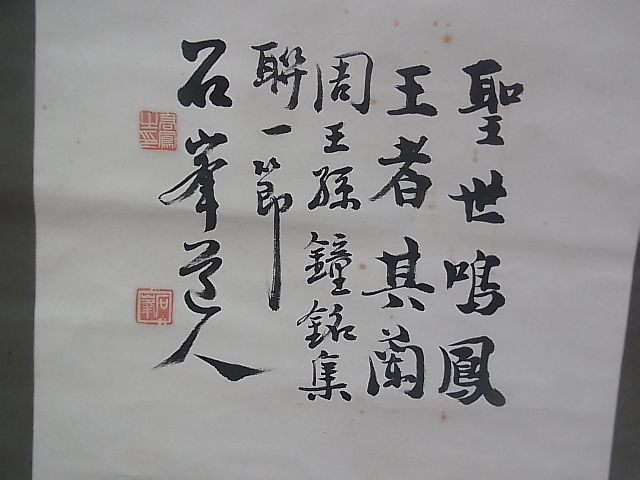 聖世鳴鳳
王者其蘭
周王孫鐘銘集
聯一節
石峯道人
石峯